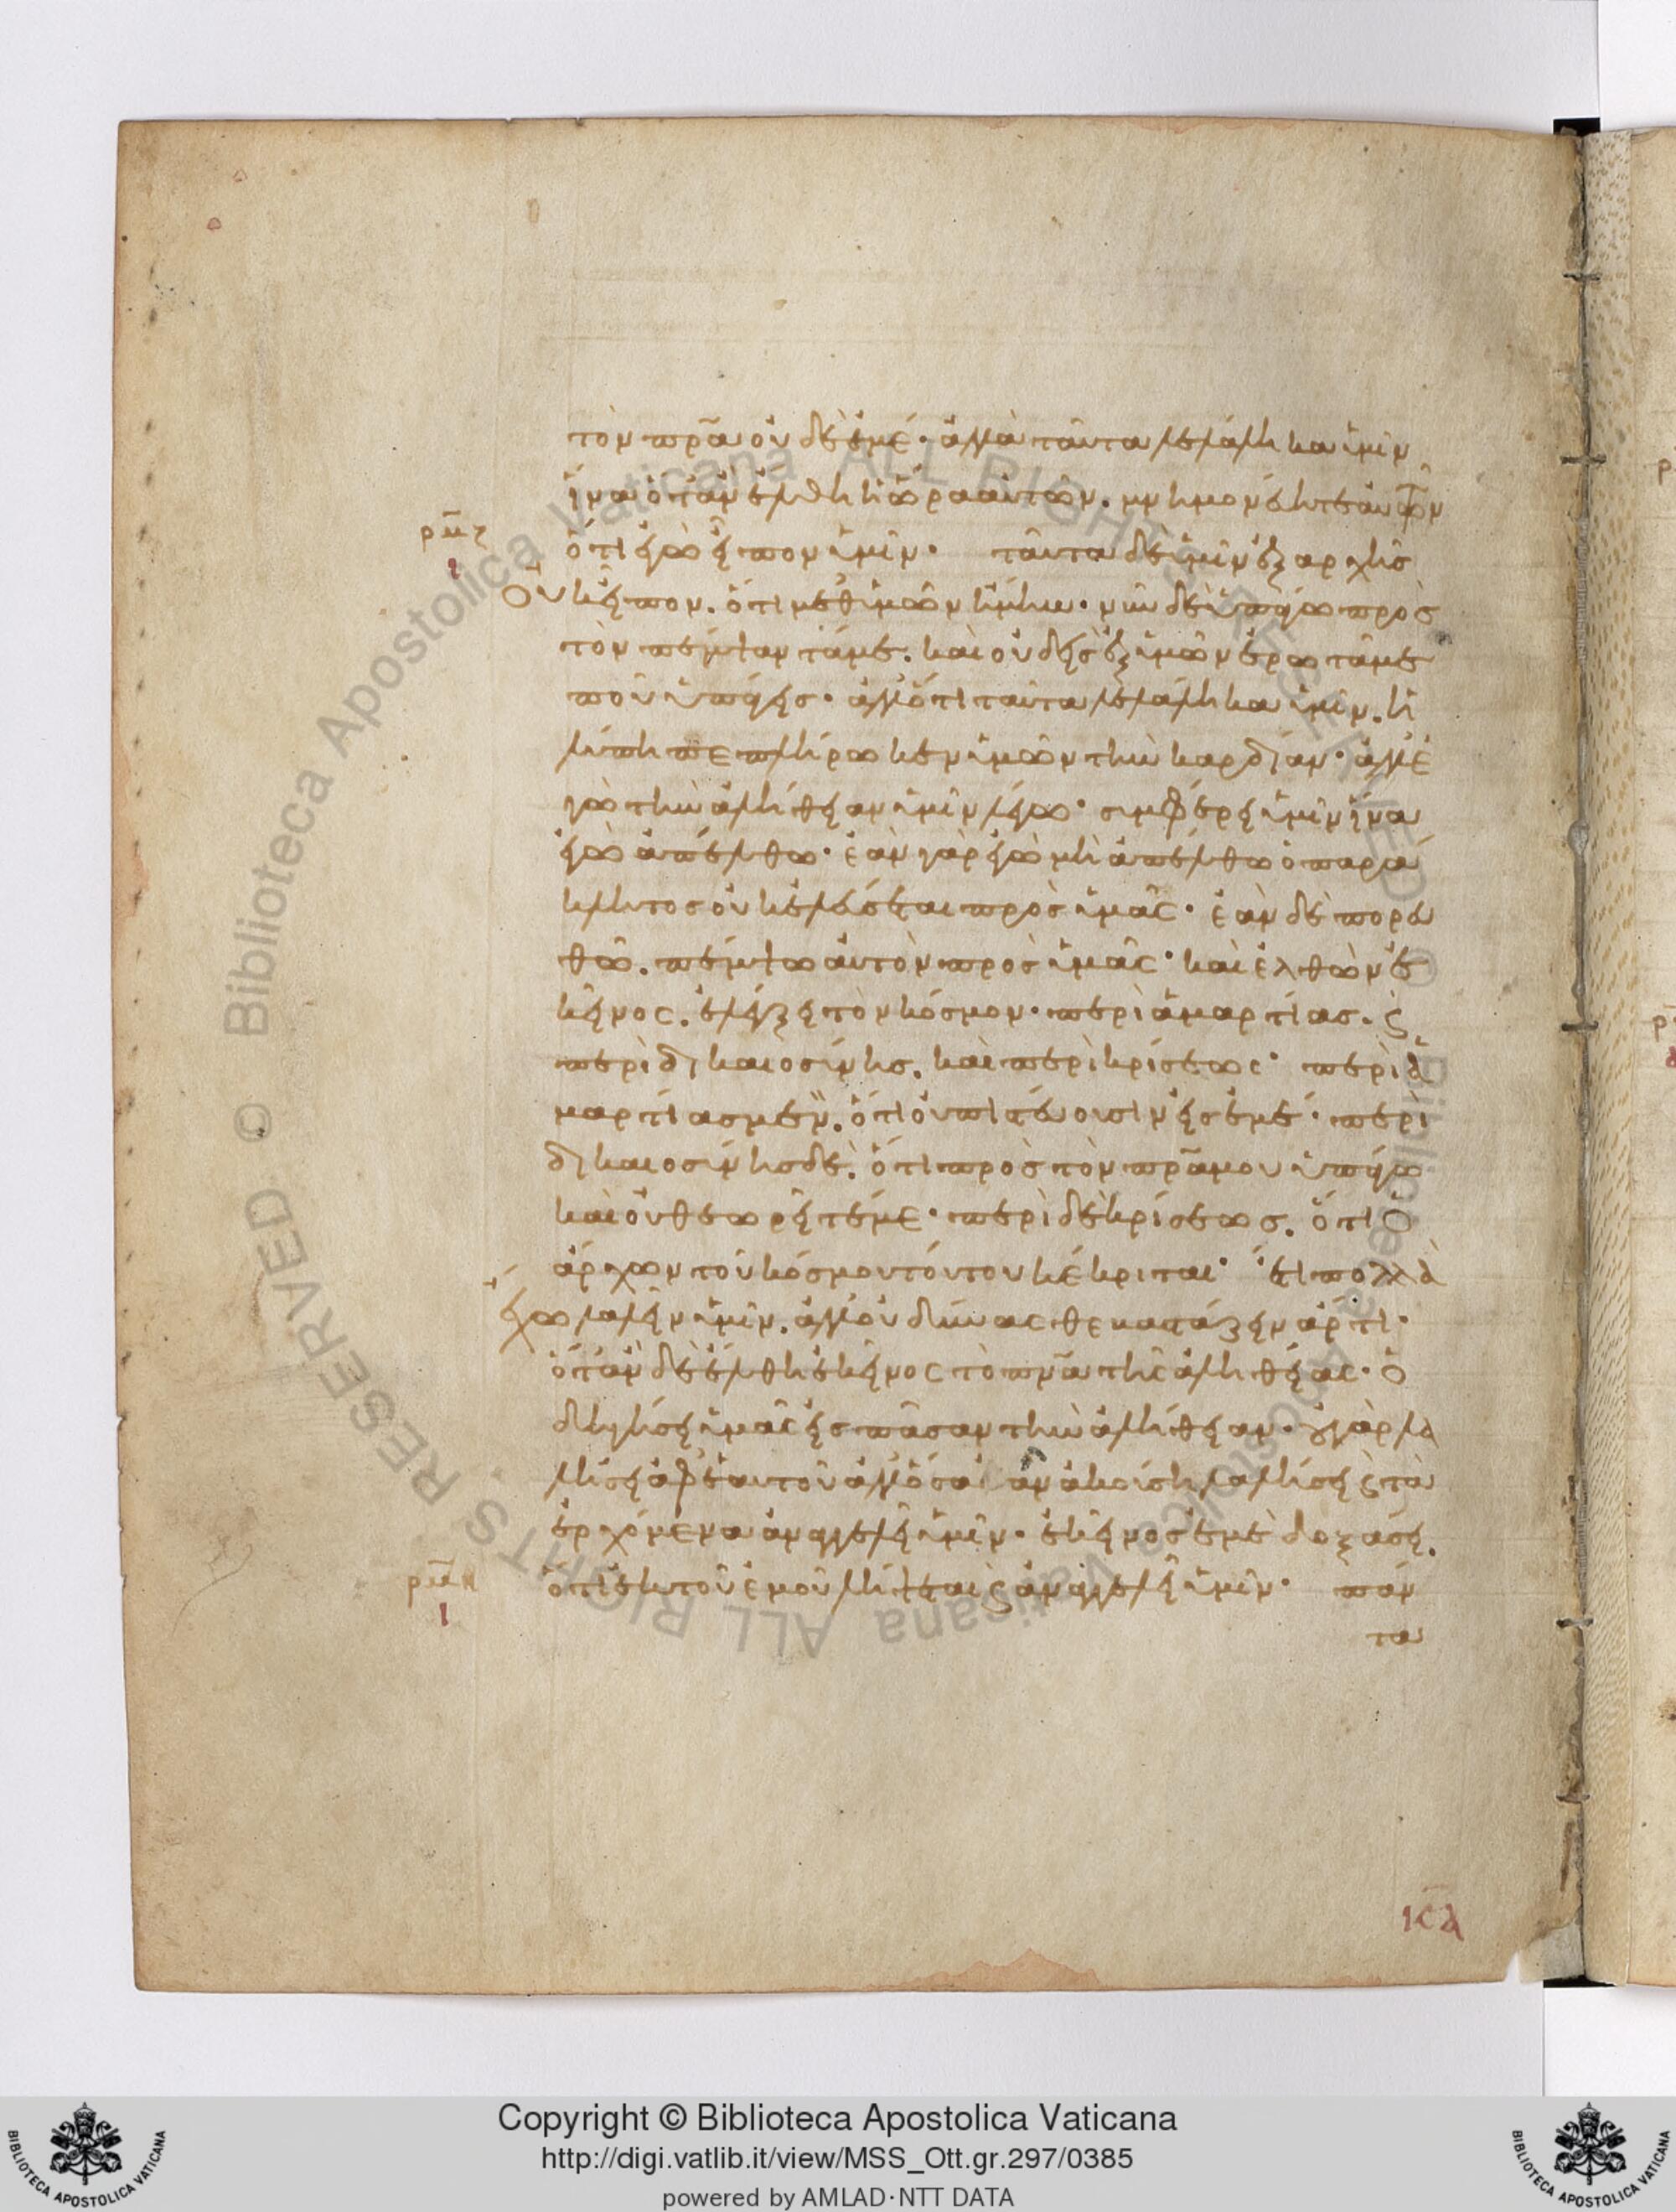 τὸν πρ̅α οὐδὲ ἐμέ· ἀλλὰ ταῦτα λελάληκα ὑμῖν
ἵνα ὅταν ἔλθη ἡ ὥρα αὐτῶν. μνημονεύητε αὐτῶν
ρμζ ὅτι ἐγὼ εἶπον ὑμῖν· ταῦτα δὲ ὑμῖν ἐξ αρχῆσ
ι
οὐκ εἶπον. ὅτι μεθ ὑμῶν ἤμην· νῦν δὲ ὑπάγω πρὸσ
τὸν πέμψαντά με. καὶ οὐδεὶς ἐξ ὑμῶν ἐρωτᾶ με
ποῦ ὑπάγεις· ἀλλ ὅτι ταῦτα λελάληκα ὑμῖν. ἡ
λύπη πεπλήρωκεν ὑμῶν τὴν καρδίαν· ἀλλ ἐ
γὼ τὴν ἀλήθειαν ὑμῖν λέγω· συμφέρει ὑμῖν ἵνα
ἐγὼ ἀπέλθω· ἐὰν γὰρ ἐγὼ μὴ ἀπέλθω ὁ παρά
κλητος οὐκ ἐλεύσεται πρὸς ὑμᾶς· ἐὰν δὲ πορευ
θῶ. πέμψω αὐτὸν πρὸς ὑμᾶς· καὶ ἐλθὼν ἐ
κεῖνος. ἐλέγξει τὸν κόσμον· περὶ ἁμαρτίας. ϛ
περὶ δικαιοσύνης. καὶ περὶ κρίσεως· περὶ ἁ
μαρτίας μεν. ὅτι οὐ πιστεύουσιν εἰς ἐμέ· περὶ
δικαιοσύνης δὲ. ὅτι πρὸς τὸν πρ̅α μου ὑπάγω
καὶ οὐ θεωρεῖτέ με· περὶ δὲ κρίσεως. ὅτι ὁ
ἄρχων τοῦ κόσμου τούτου κέκριται· ἔτι πολλὰ
ἔχω λαλεῖν ὑμῖν. ἀλλ οὐ δύνασθε βαστάζειν ἄρτι·
ὅταν δὲ ἔλθη ἐκεῖνος τὸ πν̅α τῆς ἀληθείας· ὁ
δηγήσει ὑμᾶς εἰς πᾶσαν τὴν ἀλήθειαν· οὐ γὰρ λα
λήσει ἀφ ἑαυτοῦ ἀλλ ὅσα ἀν ἀκούση λαλήσει ϛ τὰ
ἐρχόμενα ἀναγγελεῖ ὑμῖν· ἐκεῖνος ἐμὲ δοξάσει.
ρμη ὅτι ἐκ τοῦ ἐμοῦ λήψεται ϛ ἀναγγελεῖ ὑμῖν· πάν
ι
τα
© Biblioteca Apostolica Vaticana ALL RIGHTS RESERVED
© Biblioteca Apostolica Vaticana ALL RIGHTS RESERVED
Copyright © Biblioteca Apostolica Vaticana
http://digi.vatlib.it/view/MSS_Ott.gr.297/0385
powered by AMLAD·NTT DATA
BIBLIOTECA APOSTOLICA VATICANA
BIBLIOTECA APOSTOLICA VATICANA